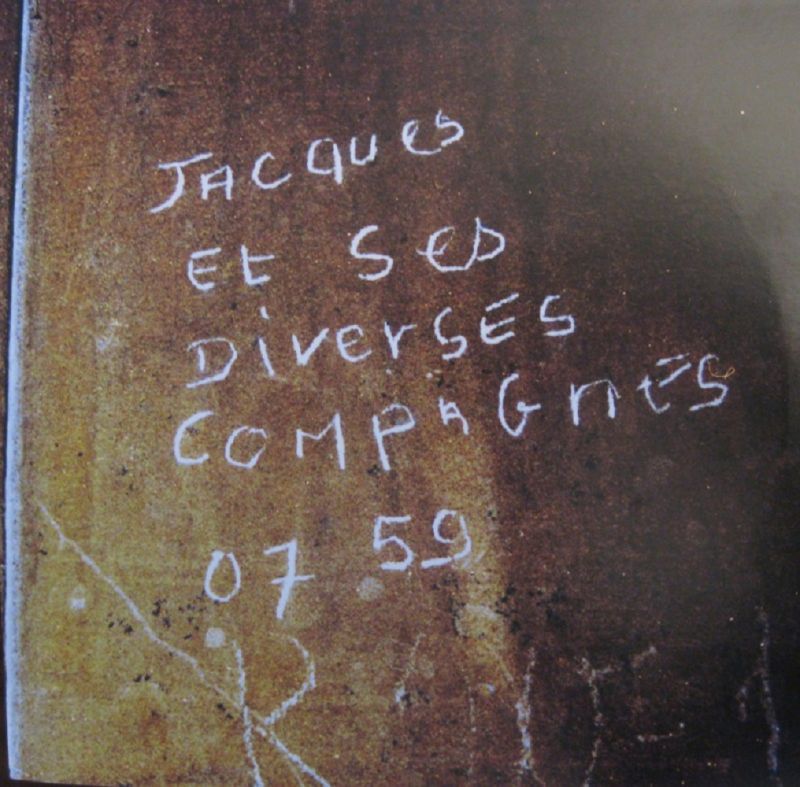 JACQUES
ET SES
DIVERSES
COMPAGNES
07 59